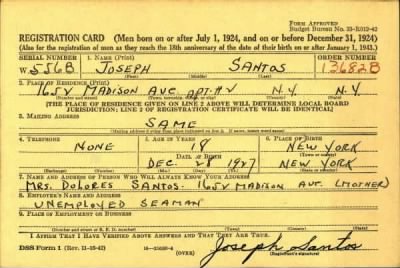 FORM APPROVED
Budget Bureau No. 33-R012-42
REGISTRATION CARD (Men born on or after July 1, 1924, and on or before December 31, 1924)
(Also for the registration of men as they reach the 18th anniversary of the date of their birth on or after January 1, 1943.)
SERIAL NUMBER 1. NAME (Print) ORDER NUMBER
W556B JOSEPH SANTOS 13682B
(First) (Middle) (Last)
2. PLACE OF RESIDENCE (Print)
MADISON AVE. N.Y. N.Y.
(Number and street) (State)
[THE PLACE OF RESIDENCE GIVEN ON LINE 2 ABOVE WILL DETERMINE LOCAL BOARD
JURISDICTION; LINE 2 OF REGISTRATION CERTIFICATE WILL BE IDENTICAL]
3. MAILING ADDRESS
SAME
(Mailing address if other than place indicated on line 2. If same, insert word same)
4. TELEPHONE 5. AGE IN YEARS 6. PLACE OF BIRTH
NONE 18 NEW YORK
DATE OF BIRTH
DEC. 1927 NEW YORK
7. NAME AND ADDRESS OF PERSON WHO WILL ALWAYS KNOW YOUR ADDRESS
MRS. DOLORES SANTOS MADISON AVE. (MOTHER)
8. EMPLOYER'S NAME AND ADDRESS
UNEMPLOYED SEAMAN
9. PLACE OF EMPLOYMENT OR BUSINESS
I AFFIRM THAT I HAVE VERIFIED ABOVE ANSWERS AND THAT THEY ARE TRUE.
DSS Form 1 (OVER) Joseph Santos
(Registrant's signature)